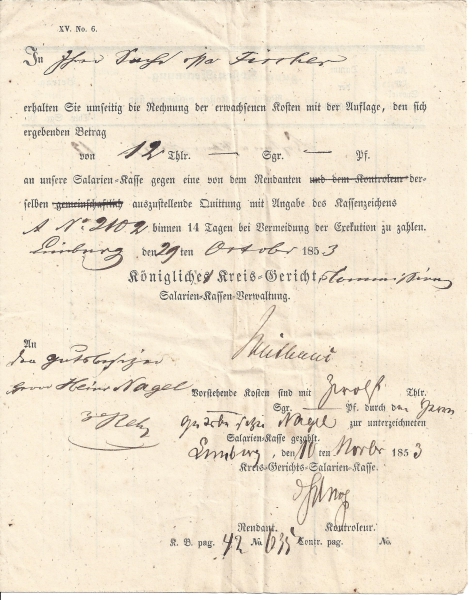 XV. No. 6.
In Ihrer Sache Fischer
erhalten Sie umseitig die Rechnung der erwachsenen Kosten mit der Auflage, den sich
ergebenden Betrag
von 12 Thlr. — Sgr. — Pf.
an unsere Salarien-Kasse gegen eine von dem Rendanten und dem Kontroleur der-
selben gemeinschaftlich auszustellende Quittung mit Angabe des Kassenzeichens
A No 2102 binnen 14 Tagen bei Vermeidung der Exekution zu zahlen.
Limburg, den 29 ten October 1853
Königliches Kreis-Gericht Commission
Salarien-Kassen-Verwaltung.
An
den Gutsbesitzer
Herrn Nagel
Vorstehende Kosten sind mit Zwölf Thlr.
Sgr. — Pf. durch den Herrn
Gutsbesitzer Nagel zur unterzeichneten
Salarien-Kasse gezahlt.
Limburg, den 10 ten Novbr 1853
Kreis-Gerichts-Salarien-Kasse.
Rendant. Kontroleur.
K. B. pag. 42 No. 635 Contr. pag. No.